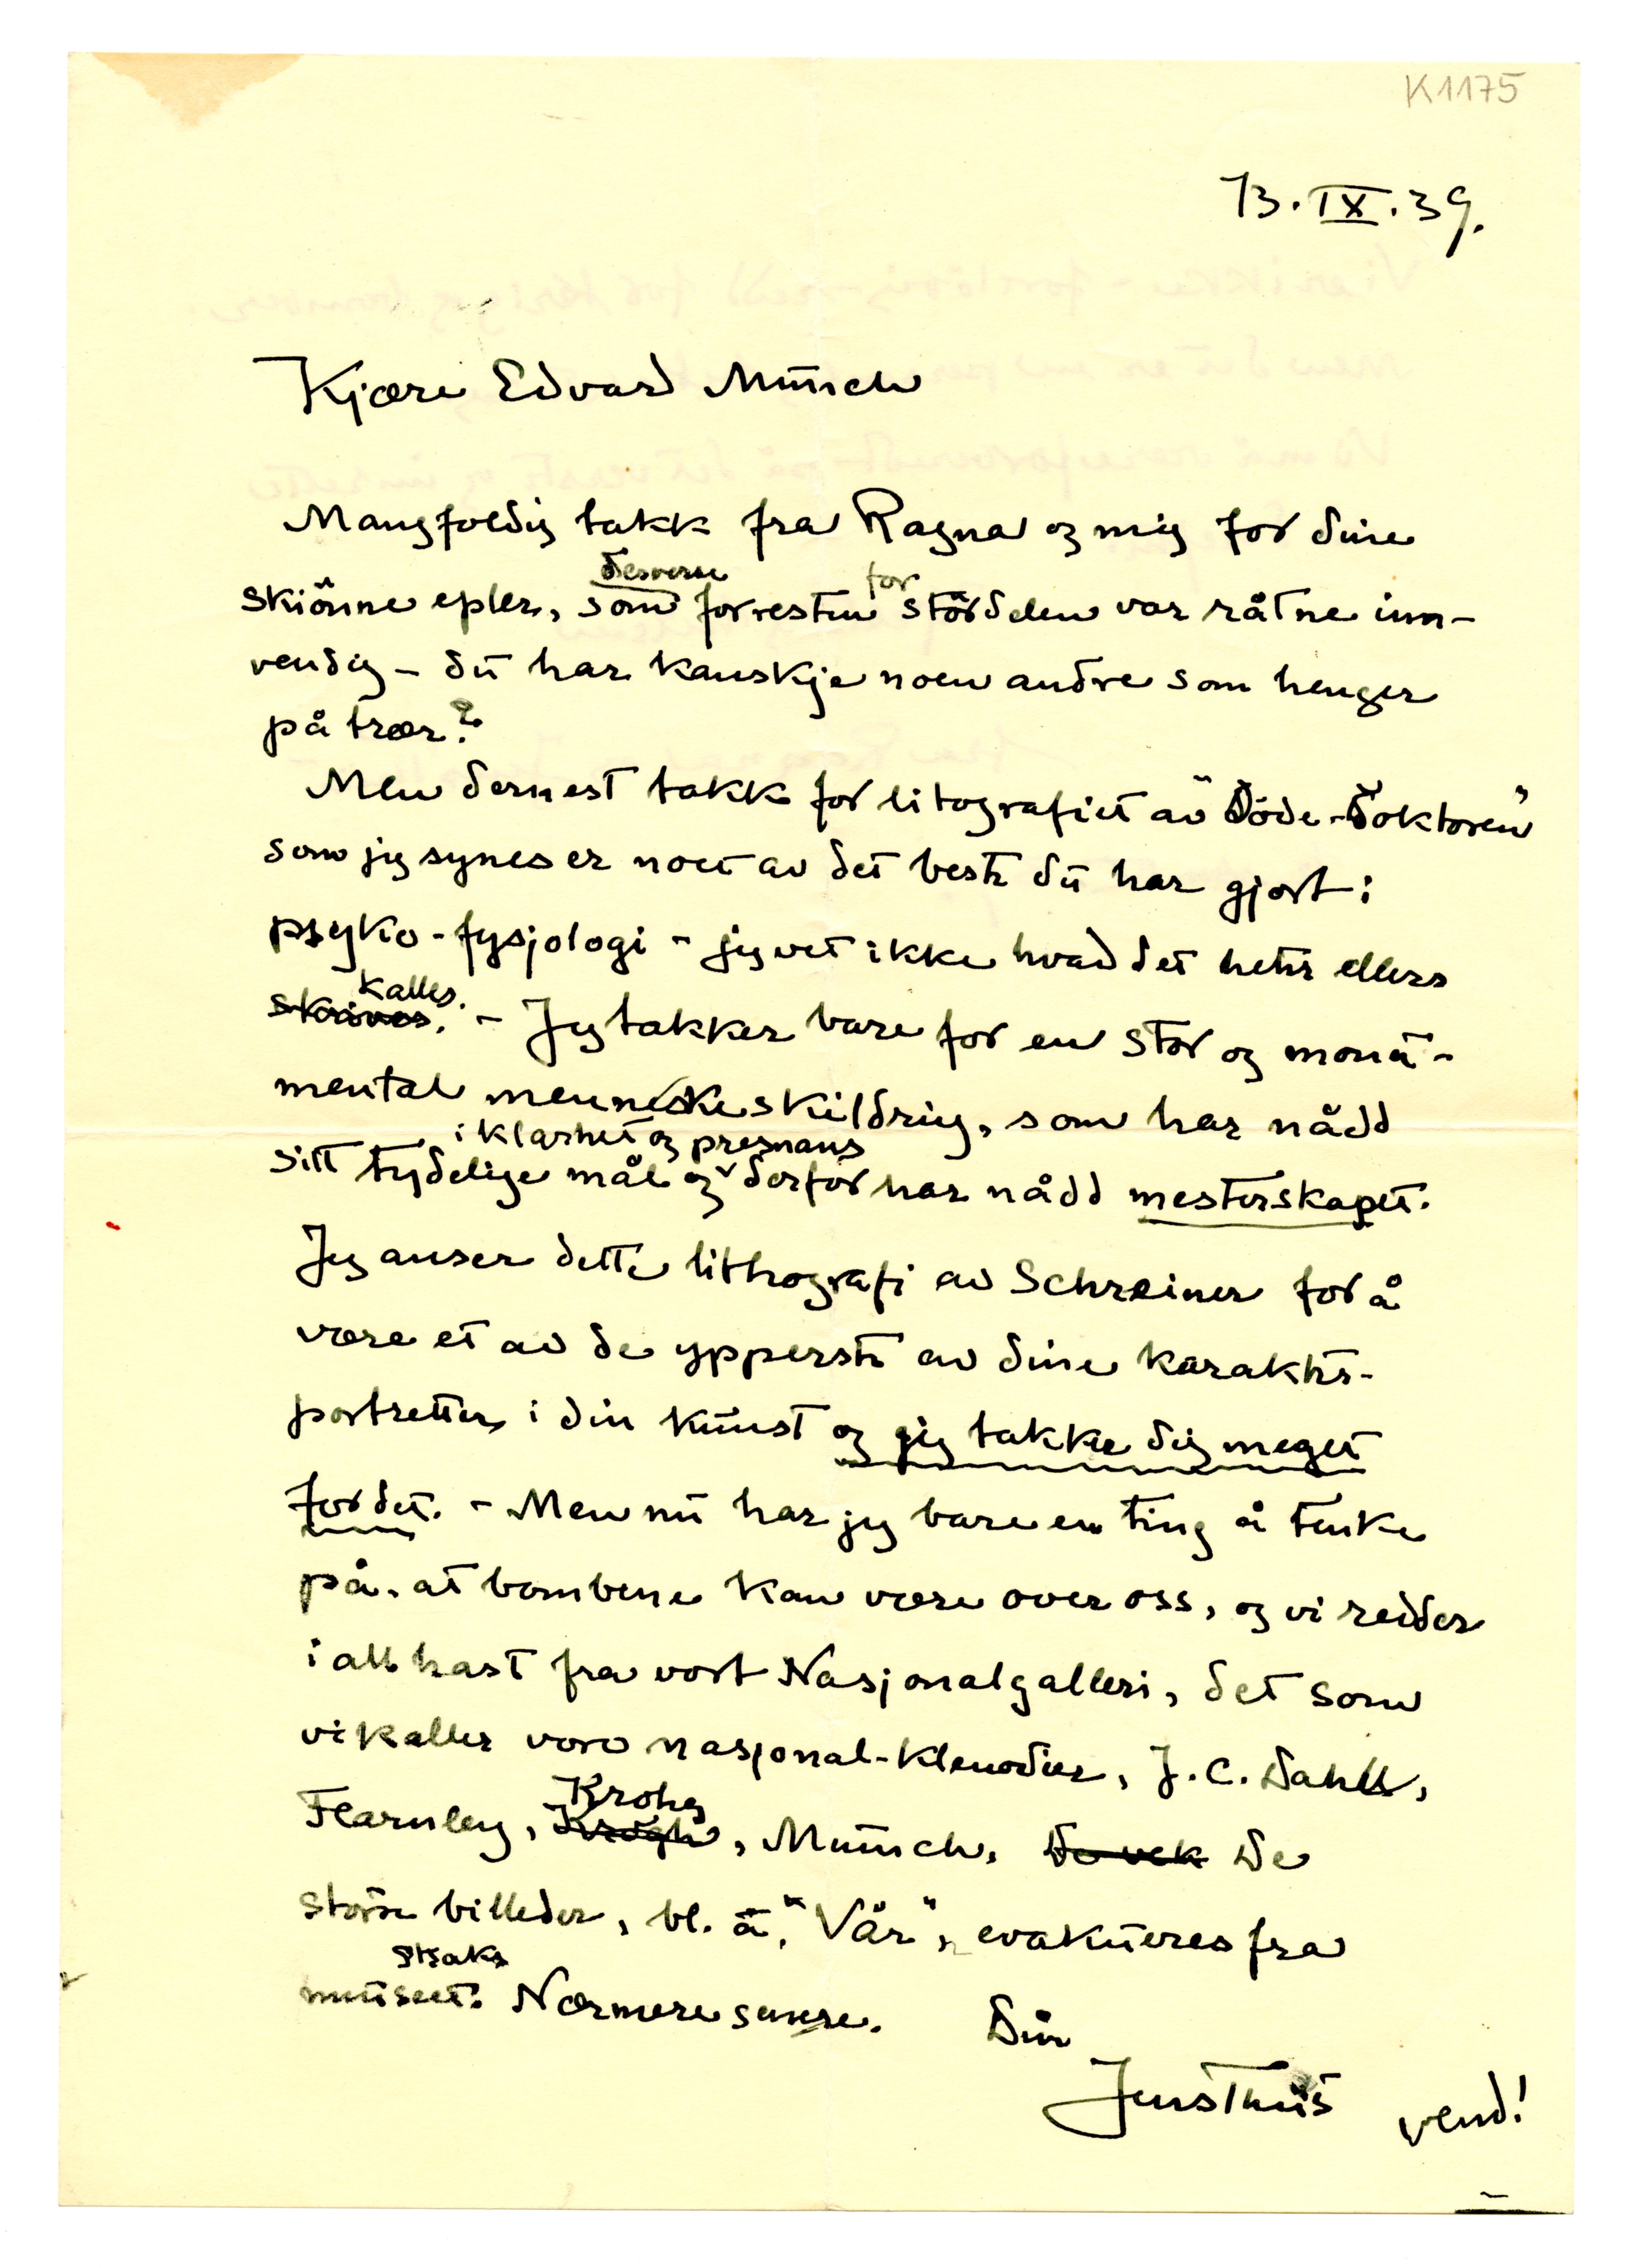 K1175
13.IX.39.
Kjære Edvard Munch
Mangfoldig takk fra Ragna og mig for dine
desverre for
skiönne epler, som forresten stördelen var råtne inn-
vendig – du har kanskje noen andre som henger
på trær?
Men dernest takk for litografiet av "Döde-Doktoren"
som jeg synes er noet av det beste du har gjort i
psyko-fysjologi – jeg vet ikke hvad det heter ellers
kalles.
skrives. – Jeg takker bare for en stor og monu-
mental menneskeskildring, som har nådd
i klarhet og pregnans
sitt tydelige mål og derfor har nådd mesterskapet.
Jeg anser dette lithografi av Schreiner for å
være et av de ypperste av dine karakter-
portretter i din kunst og jeg takker dig meget
for det. – Men nu har jeg bare en ting å tenke
på, at bombene kan være over oss, og vi redder
i all hast fra vort Nasjonalgalleri, det som
vi kaller vore nasjonal-klenodier, J.C. Dahls,
Krohg
Fearnley, Krogh, Munch. De vek De
större billeder, bl. a. "Vår", evakueres fra
straks
museet. Nærmere senere. Din
Jens Thiis vend!